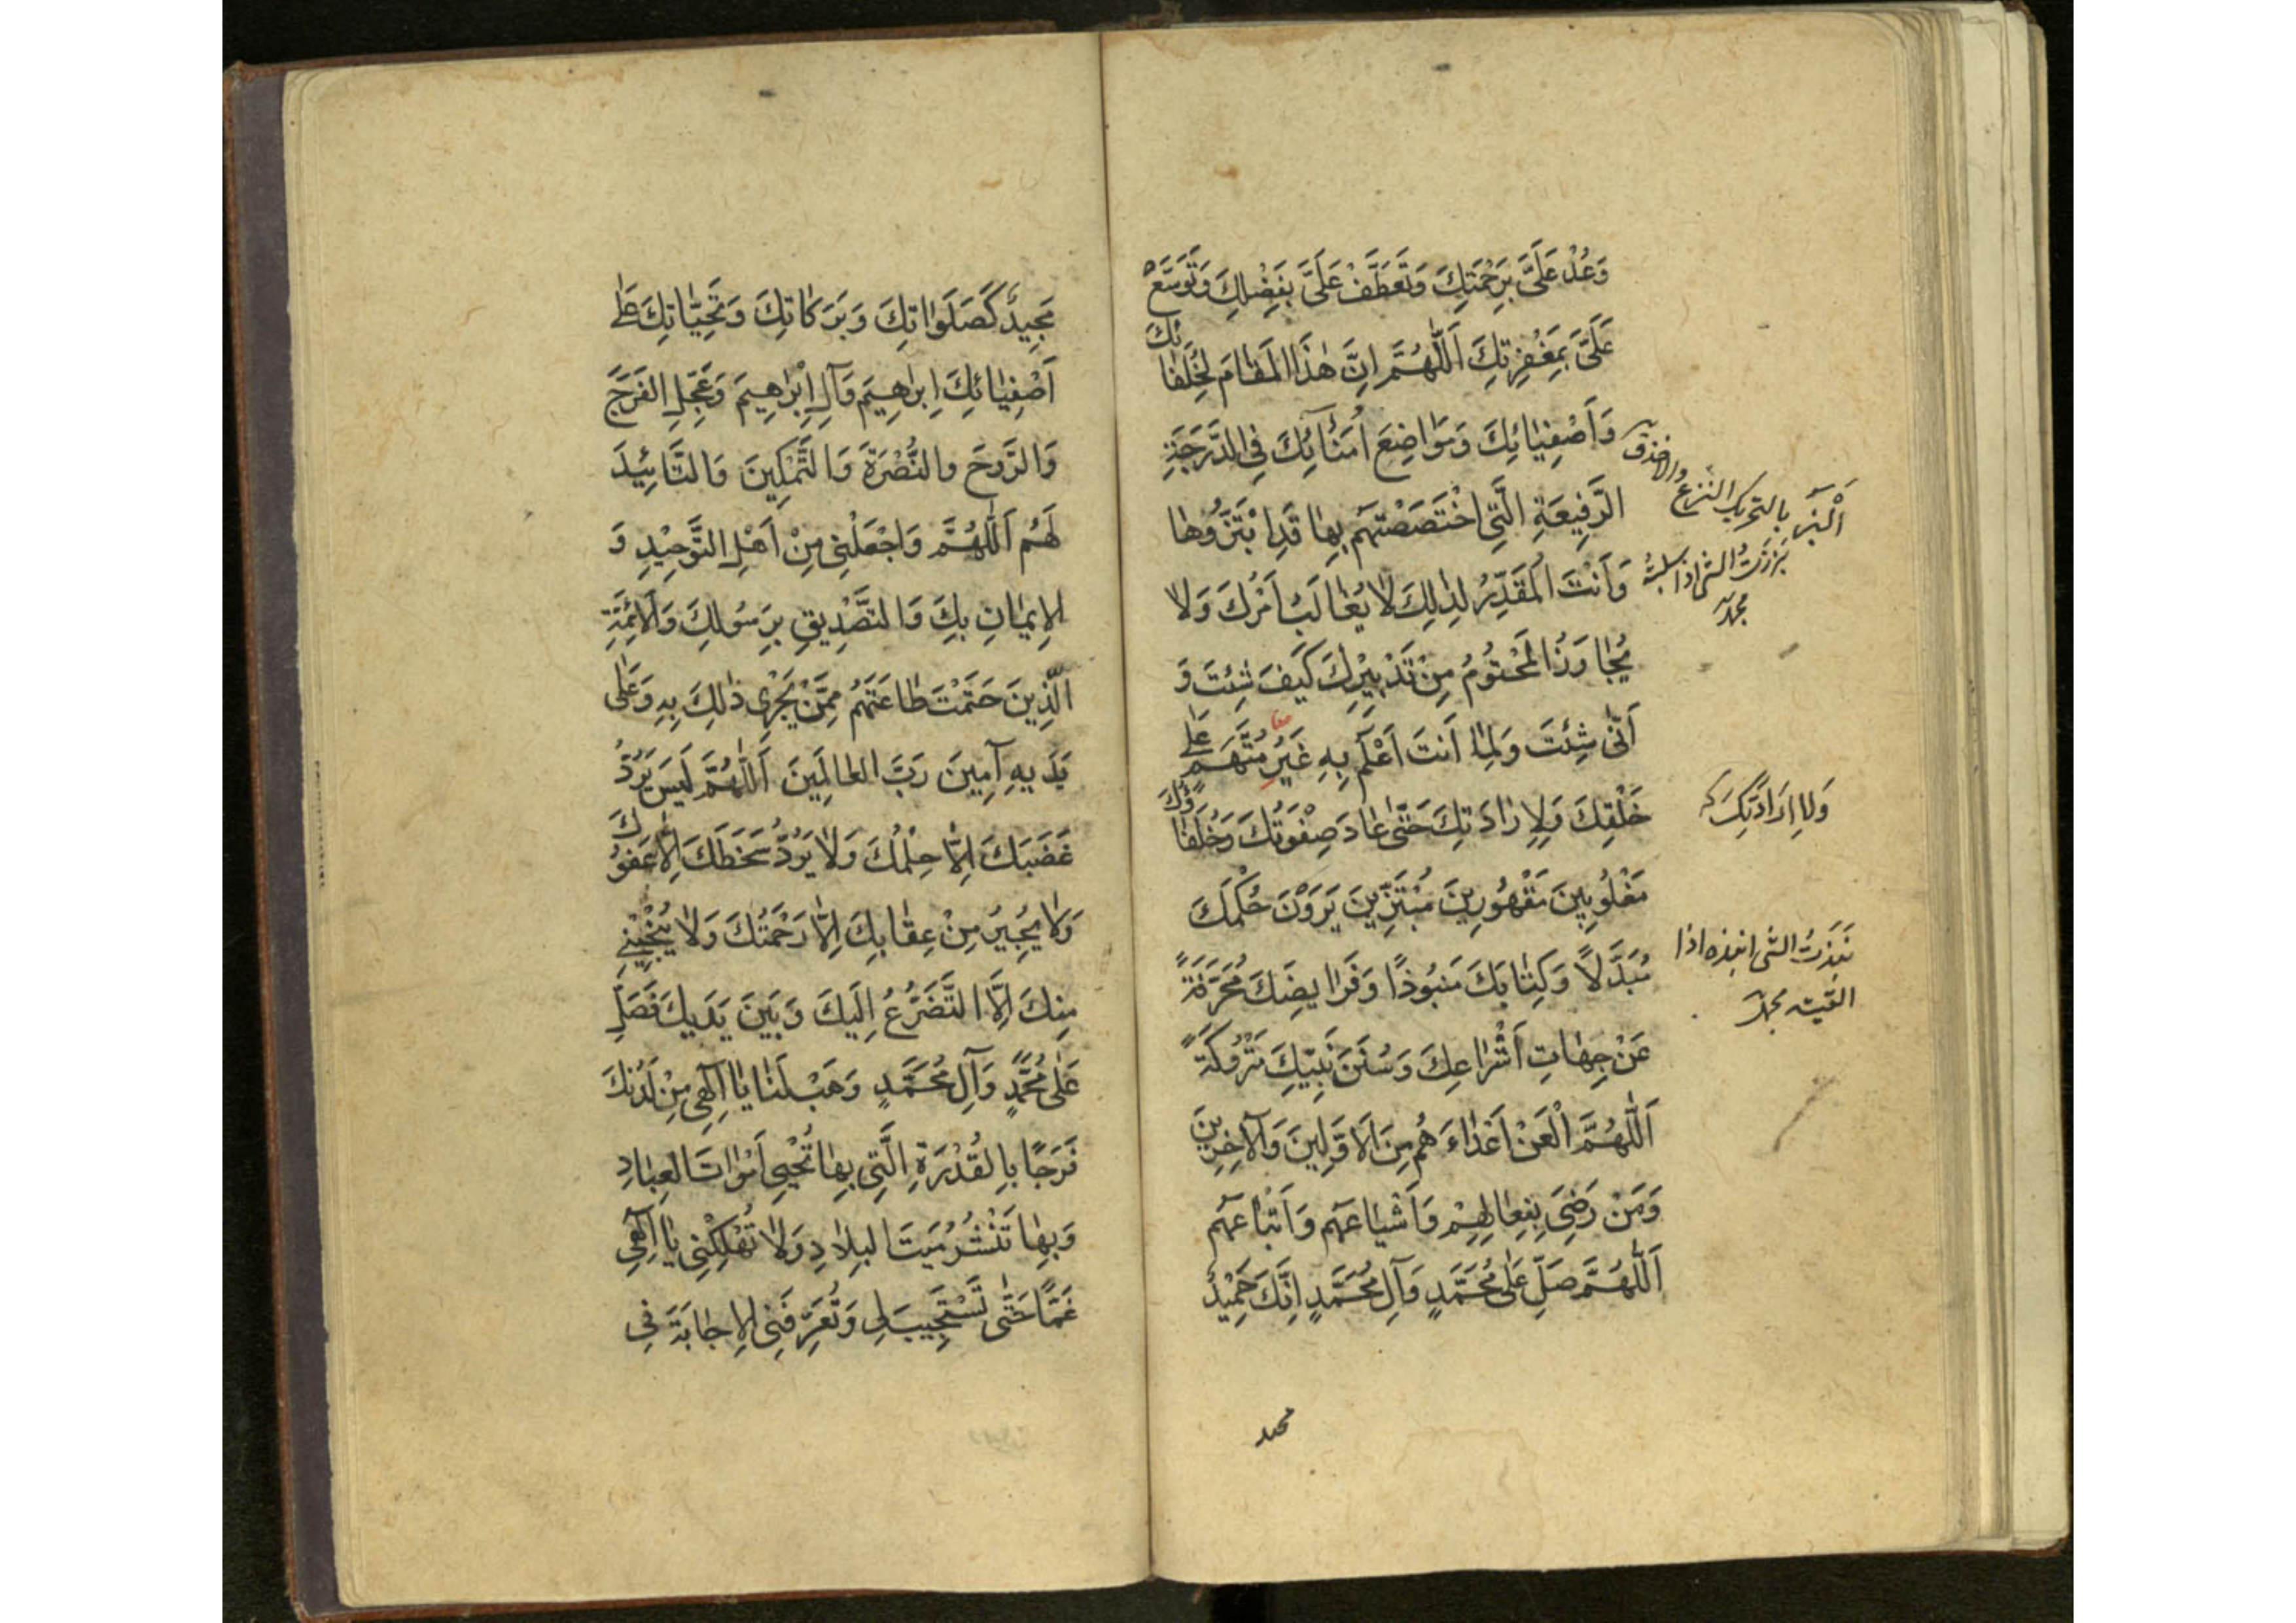 وَعُدْ عَلَيَّ بِرَحْمَتِكَ وَتَعَطَّفْ عَلَيَّ بِفَضْلِكَ وَتَوَسَّعْ
عَلَيَّ بِمَغْفِرَتِكَ اَللّٰهُمَّ اِنَّ هٰذَا الْمَقَامَ لِخُلَفَائِكَ
وَاَصْفِيَائِكَ وَمَوَاضِعَ اُمَنَائِكَ فِي الدَّرَجَةِ
الرَّفِيعَةِ الَّتِي اخْتَصَصْتَهُمْ بِهَا قَدِ ابْتَزُّوهَا
وَاَنْتَ الْمُقَدِّرُ لِذٰلِكَ لَا يُغَالَبُ اَمْرُكَ وَلَا
يُجَاوَزُ الْمَحْتُومُ مِنْ تَدْبِيرِكَ كَيْفَ شِئْتَ وَ
اَنّٰى شِئْتَ وَلِمَا اَنْتَ اَعْلَمُ بِهِ غَيْرُ مُتَّهَمٍ عَلٰى
خَلْقِكَ وَلِاِرَادَتِكَ حَتّٰى عَادَ صِفْوَتُكَ وَخُلَفَاؤُكَ
مَغْلُوبِينَ مَقْهُورِينَ مُبْتَزِّينَ يَرَوْنَ حُكْمَكَ
مُبَدَّلًا وَكِتَابَكَ مَنْبُوذًا وَفَرَايِضَكَ مُحَرَّفَةً
عَنْ جِهَاتِ اَشْرَاعِكَ وَسُنَنَ نَبِيِّكَ مَتْرُوكَةً
اَللّٰهُمَّ الْعَنْ اَعْدَاءَهُمْ مِنَ الْاَوَّلِينَ وَالْآخِرِينَ
وَمَنْ رَضِيَ بِفِعَالِهِمْ وَاَشْيَاعَهُمْ وَاَتْبَاعَهُمْ
اَللّٰهُمَّ صَلِّ عَلٰى مُحَمَّدٍ وَآلِ مُحَمَّدٍ اِنَّكَ حَمِيدٌ
اَلْبَزّ بالتحريك النزع
بَزَزْتُ الشى اذا سلبته
وَلَا اِرَادَتِكَ
نَبَذتُ الشى انبذه اذا
القيته
مَجِيدٌ كَصَلَوَاتِكَ وَبَرَكَاتِكَ وَتَحِيَّاتِكَ عَلٰى
اَصْفِيَائِكَ اِبْرٰهِيمَ وَآلِ اِبْرٰهِيمَ وَعَجِّلِ الْفَرَجَ
وَالرَّوْحَ وَالنُّصْرَةَ وَالتَّمْكِينَ وَالتَّايِيدَ
لَهُمْ اَللّٰهُمَّ وَاجْعَلْنِي مِنْ اَهْلِ التَّوْحِيْدِ وَ
الْاِيمَانِ بِكَ وَالتَّصْدِيقِ بِرَسُولِكَ وَالْاَئِمَّةِ
الَّذِينَ حَتَمْتَ طَاعَتَهُمْ مِمَّنْ يَجْرِي ذٰلِكَ بِهِ وَعَلٰى
يَدَيْهِ آمِينَ رَبَّ الْعَالَمِينَ اَللّٰهُمَّ لَيْسَ يَرُدُّ
غَضَبَكَ اِلَّا حِلْمُكَ وَلَا يَرُدُّ سَخَطَكَ اِلَّا عَفْوُكَ
وَلَا يُجِيرُ مِنْ عِقَابِكَ اِلَّا رَحْمَتُكَ وَلَا يُنْجِينِي
مِنْكَ اِلَّا التَّضَرُّعُ اِلَيْكَ وَبَيْنَ يَدَيْكَ فَصَلِّ
عَلٰى مُحَمَّدٍ وَآلِ مُحَمَّدٍ وَهَبْ لَنَا يَا اِلٰهِي مِنْ لَدُنْكَ
فَرَجًا بِالْقُدْرَةِ الَّتِي بِهَا تُحْيِي اَمْوَاتَ الْعِبَادِ
وَبِهَا تَنْشُرُ مَيْتَ الْبِلَادِ وَلَا تُهْلِكْنِي يَا اِلٰهِي
غَمًّا حَتّٰى تَسْتَجِيبَ لِي وَتُعَرِّفَنِي الْاِجَابَةَ فِي